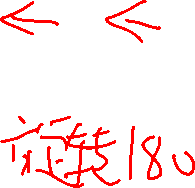 ← ←
旋转180